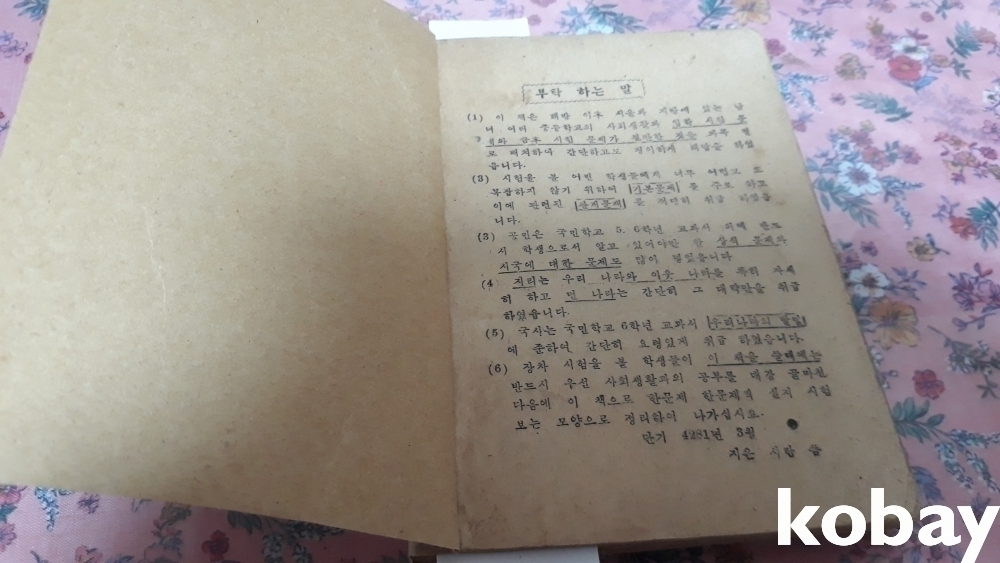 부탁 하는 말
(1) 이 책은 해방 이후 서울과 지방에 있는 남
녀 여러 중등학교의 사회생활과 입학 시험 문
제와 금후 시험 문제가 될만한 것을 과목 별
로 배치하여 간단하고도 정확하게 해답을 하였
습니다.
(3) 시험을 볼 어린 학생들에게 너무 어렵고 또
복잡하지 않기 위하여 기본문제 를 주로 하고
이에 관련된 관계문제 를 적당히 취급 하였습
니다.
(3) 공민은 국민학교 5. 6학년 교과서 외에 반드
시 학생으로서 알고 있어야만 할 상식 문제와
시국에 대한 문제도 많이 넣었습니다
(4 지리는 우리 나라와 이웃 나라를 특히 자세
히 하고 먼 나라는 간단히 그 대략만을 취급
하였읍니다.
(5) 국사는 국민학교 6학년 교과서 우리나라의 발달
에 준하여 간단히 요령있게 취급 하였습니다.
(6) 장차 시험을 볼 학생들이 이 책을 볼때에는
반드시 우선 사회생활과의 공부를 대강 끝마친
다음에 이 책으로 한문제 한문제씩 실지 시험
보는 모양으로 정리하여 나가십시요.
단기 4281년 3월
지은 사람 씀
kobay